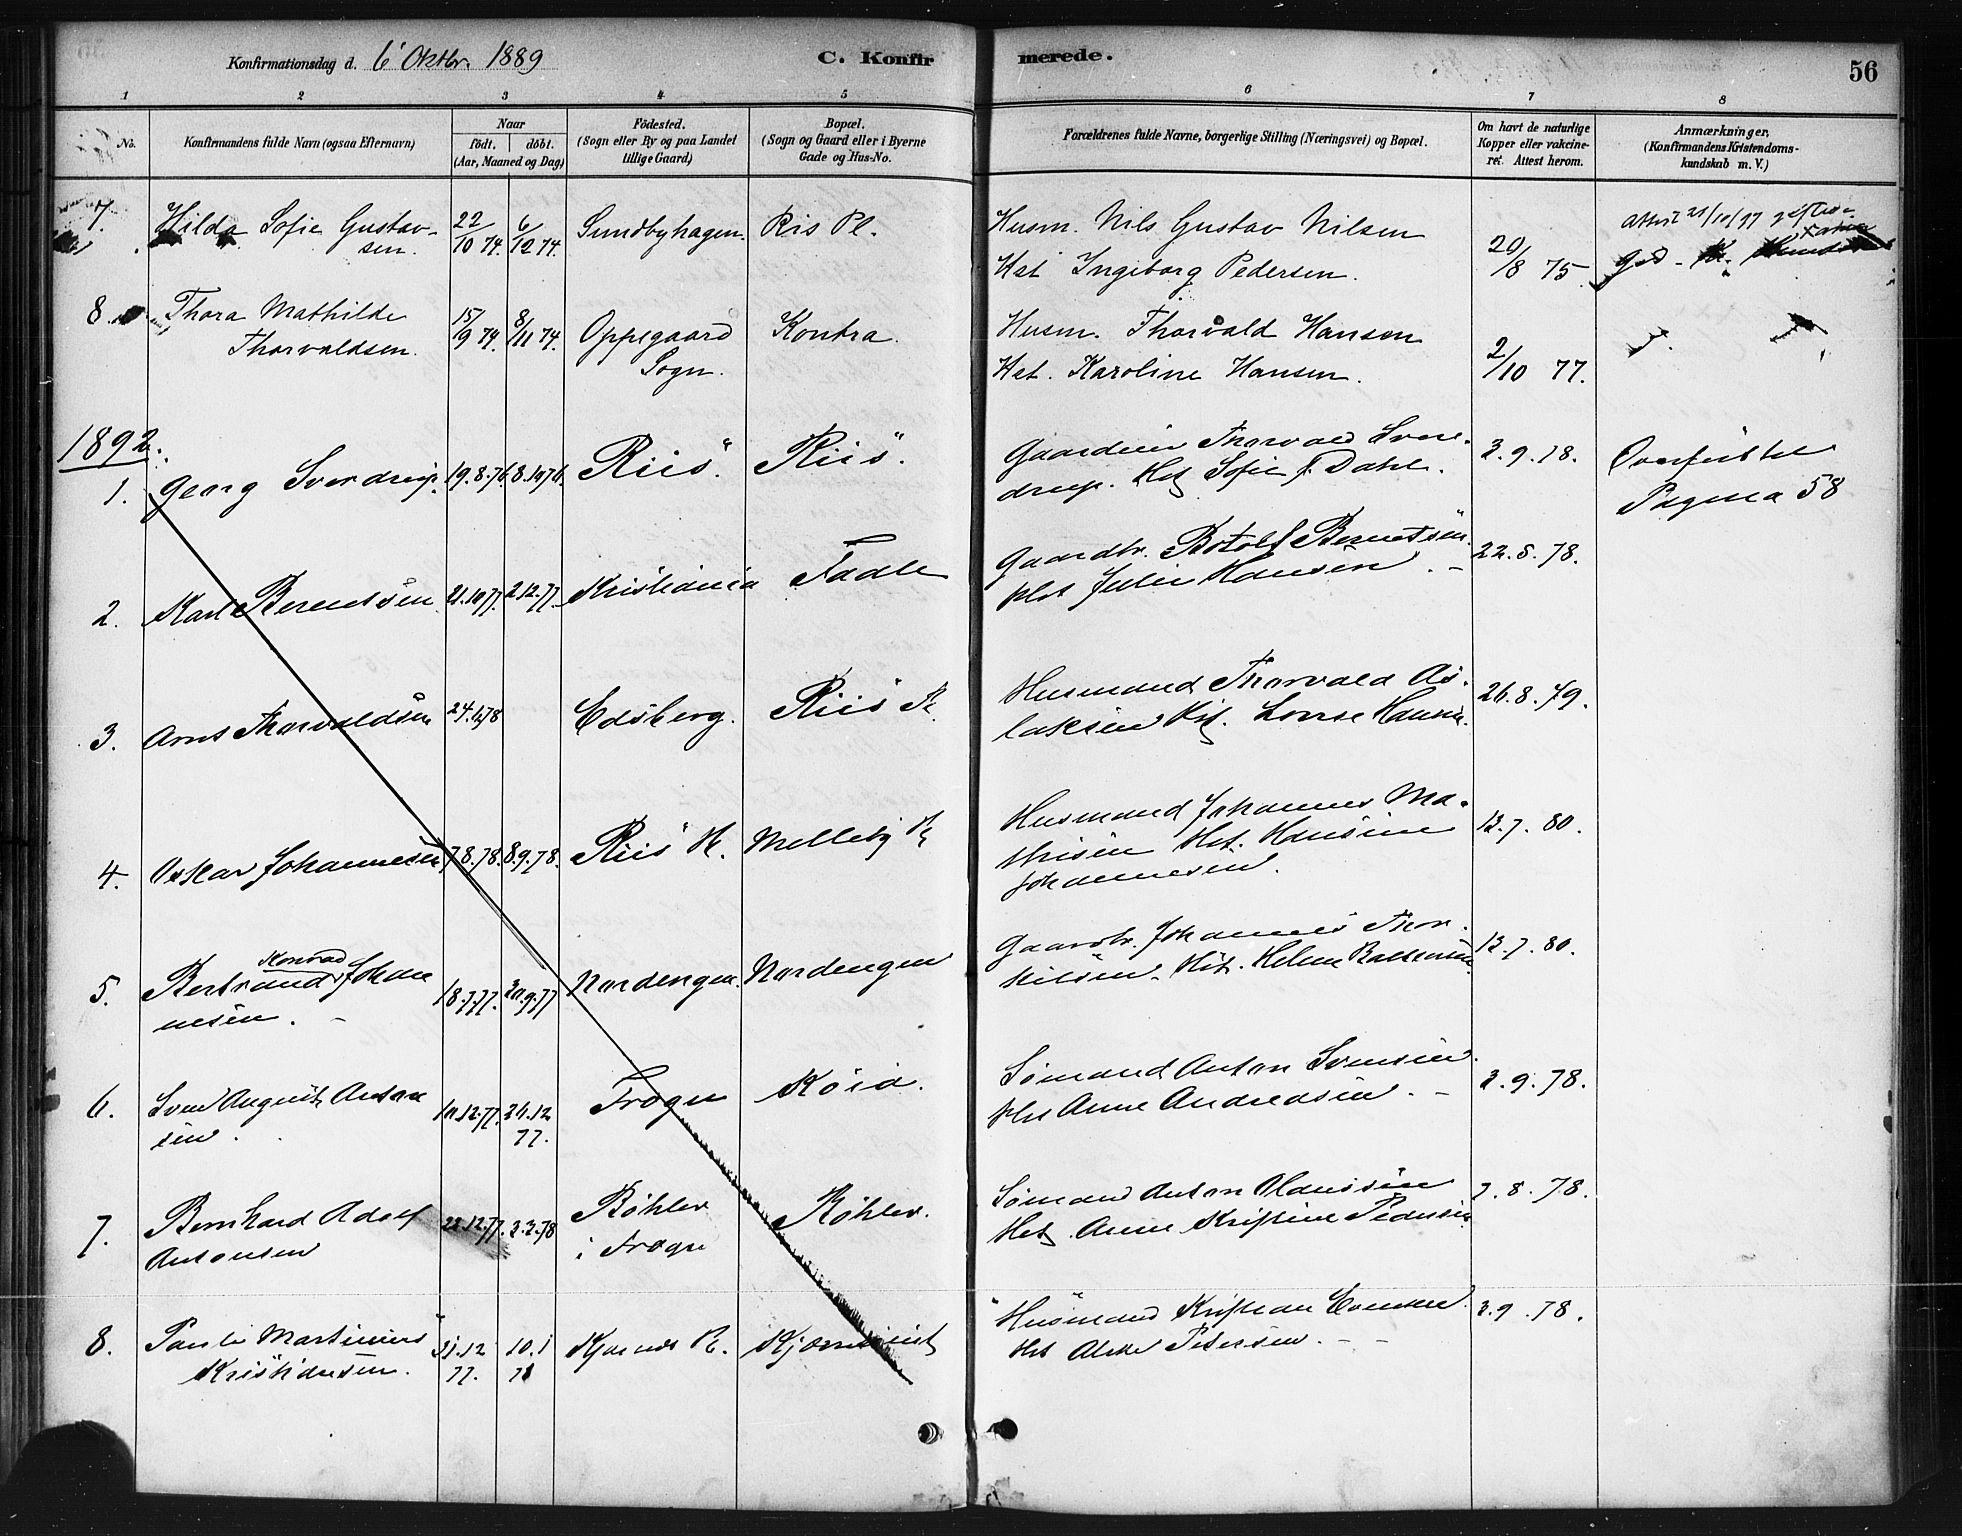 Konfirmationsdag d. 6' Oktbr. 1889 C. Konfirmerede. 56
1 2 3 4 5 6 7 8
No.
Konfirmandens fulde Navn (ogsaa Efternavn)
Naar
födt. döbt.
(Aar, Maaned og Dag)
Födested.
(Sogn eller By og paa Landet
tillige Gaard)
Bopæl.
(Sogn og Gaard eller i Byerne
Gade og Hus-No.
Forældrenes fulde Navne, borgerlige Stilling (Næringsvei) og Bopæl.
Om havt de naturlige
Kopper eller vakcine-
ret. Attest herom.
Anmærkninger,
(Konfirmandens Kristendoms-
kundskab m. V.)
7. Hilda Sofie Gustav- 22/10 74. 6/12 74. Sundbyhagen. Ris Pl. Husm. Nils Gustav Nilsen 20/8 75 Attest 21/10/97
sen. Kst Ingeborg Pedersen. God
8. Thora Mathilde 15/9 74. 8/11 74. Oppegaard Kontra. Husm. Thorvald Hansen 2/10 77.
Thorvaldsen. Sogn. Kst. Karoline Hansen.
1892.
1. Georg Sverdrup. 19.8.76. 8.10.76. Riis. Riis. Gaardeier Thorvald Sver- 3.9.78. Overført til
drup. Hst Sofie f. Dahl. Pagina 58
2. Karl Berentsen 21.10.77. 2.12.77. Kristiania Taale Gaardbr. Botolf Berentsen 22.8.78.
Hst Julie Hansen. -
3. Arns Thorvaldsen 24.12.78 Edsberg. Riis Pl. Husmand Thorvald As- 26.8.79.
laksen Hst. Lovise Hansen.
4. Oskar Johannesen 7.8.78. 8.9.78. Riis Pl. Melleby Pl Husmand Johannes Ma- 13.7.80.
thisen Hst. Hansine
Johannesen.
5. Bertrand Konrad Johan 18.7.77. 30.9.77 Nordengen. Nordengen Gaardbr. Johannes Thor- 13.7.80.
nesen. - kilsen. Hst. Helene
6. Sven August Anton 10.12.77. 26.12 77. Frogn Sømand Anton Svensen 3.9.78.
sen. Hst Anne Andreasen. -
7. Bernhard Adolf 22.12.77. 3.2.78 Røhler Røhler. Sømand Anton Hanssen 7.8.78.
Antonsen i Frogn Hst. Anne Kristine Pedersen
8. Paul Martinius 31.12 77. 10.1 78 Kjærnes Pl. Husmand Kristian 3.9.78.
Kristiansen. Hst Petersen. - -